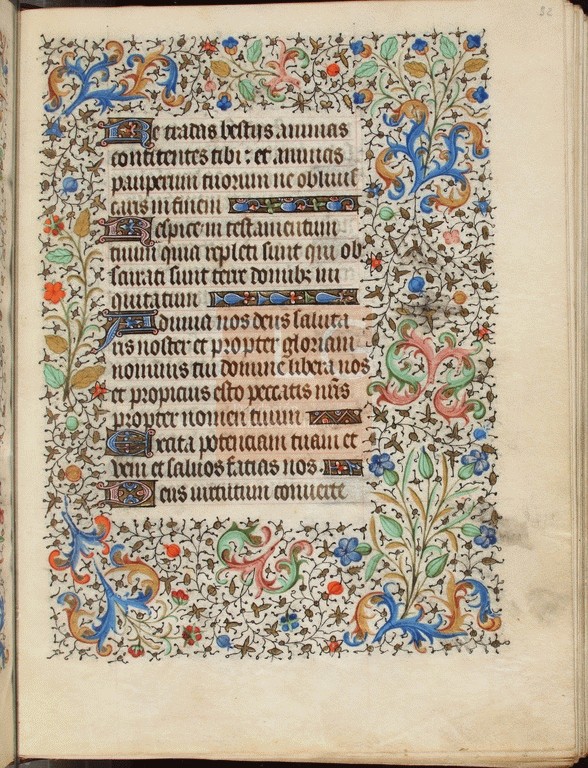 52
Ne tradas bestiis animas
confitentes tibi : et animas
pauperum tuorum ne oblivis
caris in finem
Respice in testamentum
tuum quia repleti sunt qui ob
scurati sunt terre domibz ini
quitatum
Adiuva nos deus saluta
ris noster et propter gloriam
nominis tui domine libera nos
et propicius esto peccatis nr̄is
propter nomen tuum
Excita potenciam tuam et
veni et salvos facias nos
Deus virtutum converte